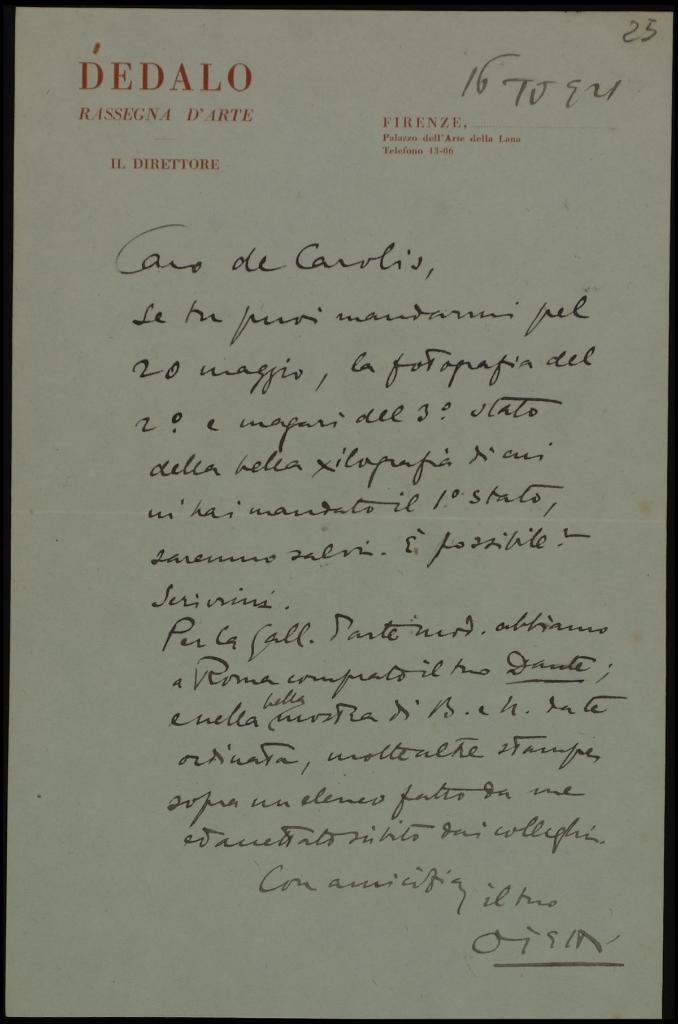 25
DEDALO
RASSEGNA D'ARTE
IL DIRETTORE
16
921
FIRENZE,
Palazzo dell'Arte della Lana
Telefono 43-06
Caro de Carolis,
se tu puoi mandarmi pel
20 maggio, la fotografia del
2º e magari del 3º stato
della bella xilografia di cui
mi hai mandato il 1º stato,
saremmo salvi. È possibile?
Scrivimi.
Per la Gall. d'arte mod. abbiamo
a Roma comprato il tuo Dante;
e nella bella mostra di B. e N. da te
ordinata, molte altre stampe,
sopra un elenco fatto da me
ed accettato subito dai colleghi.
Con amicizia, il tuo
Ojetti